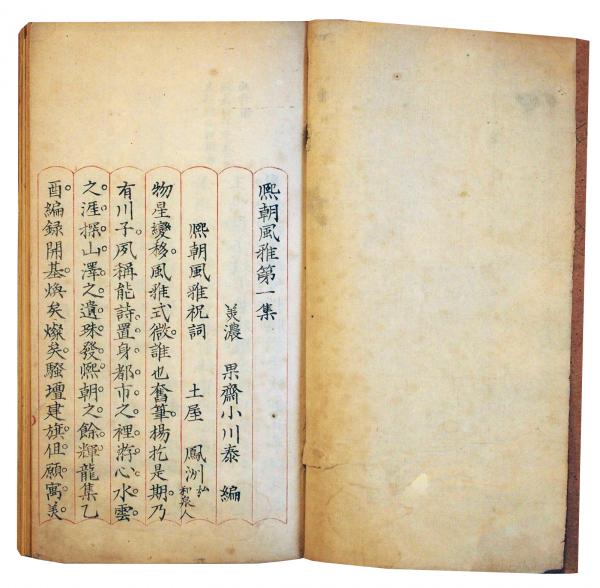 熈朝風雅第一集
美濃　果齋小川泰　編
熈朝風雅祝詞　土屋　鳳洲弘和泉人
物星變移。風雅式微。誰也奮筆。楊扢是期。乃
有川子。夙稱能詩。置身都市之裡。游心水雲
之涯。探山澤之遺珠。發熈朝之餘輝。龍集乙
酉。編録開基。煥矣燦矣。騷壇建旗。但願寓美。